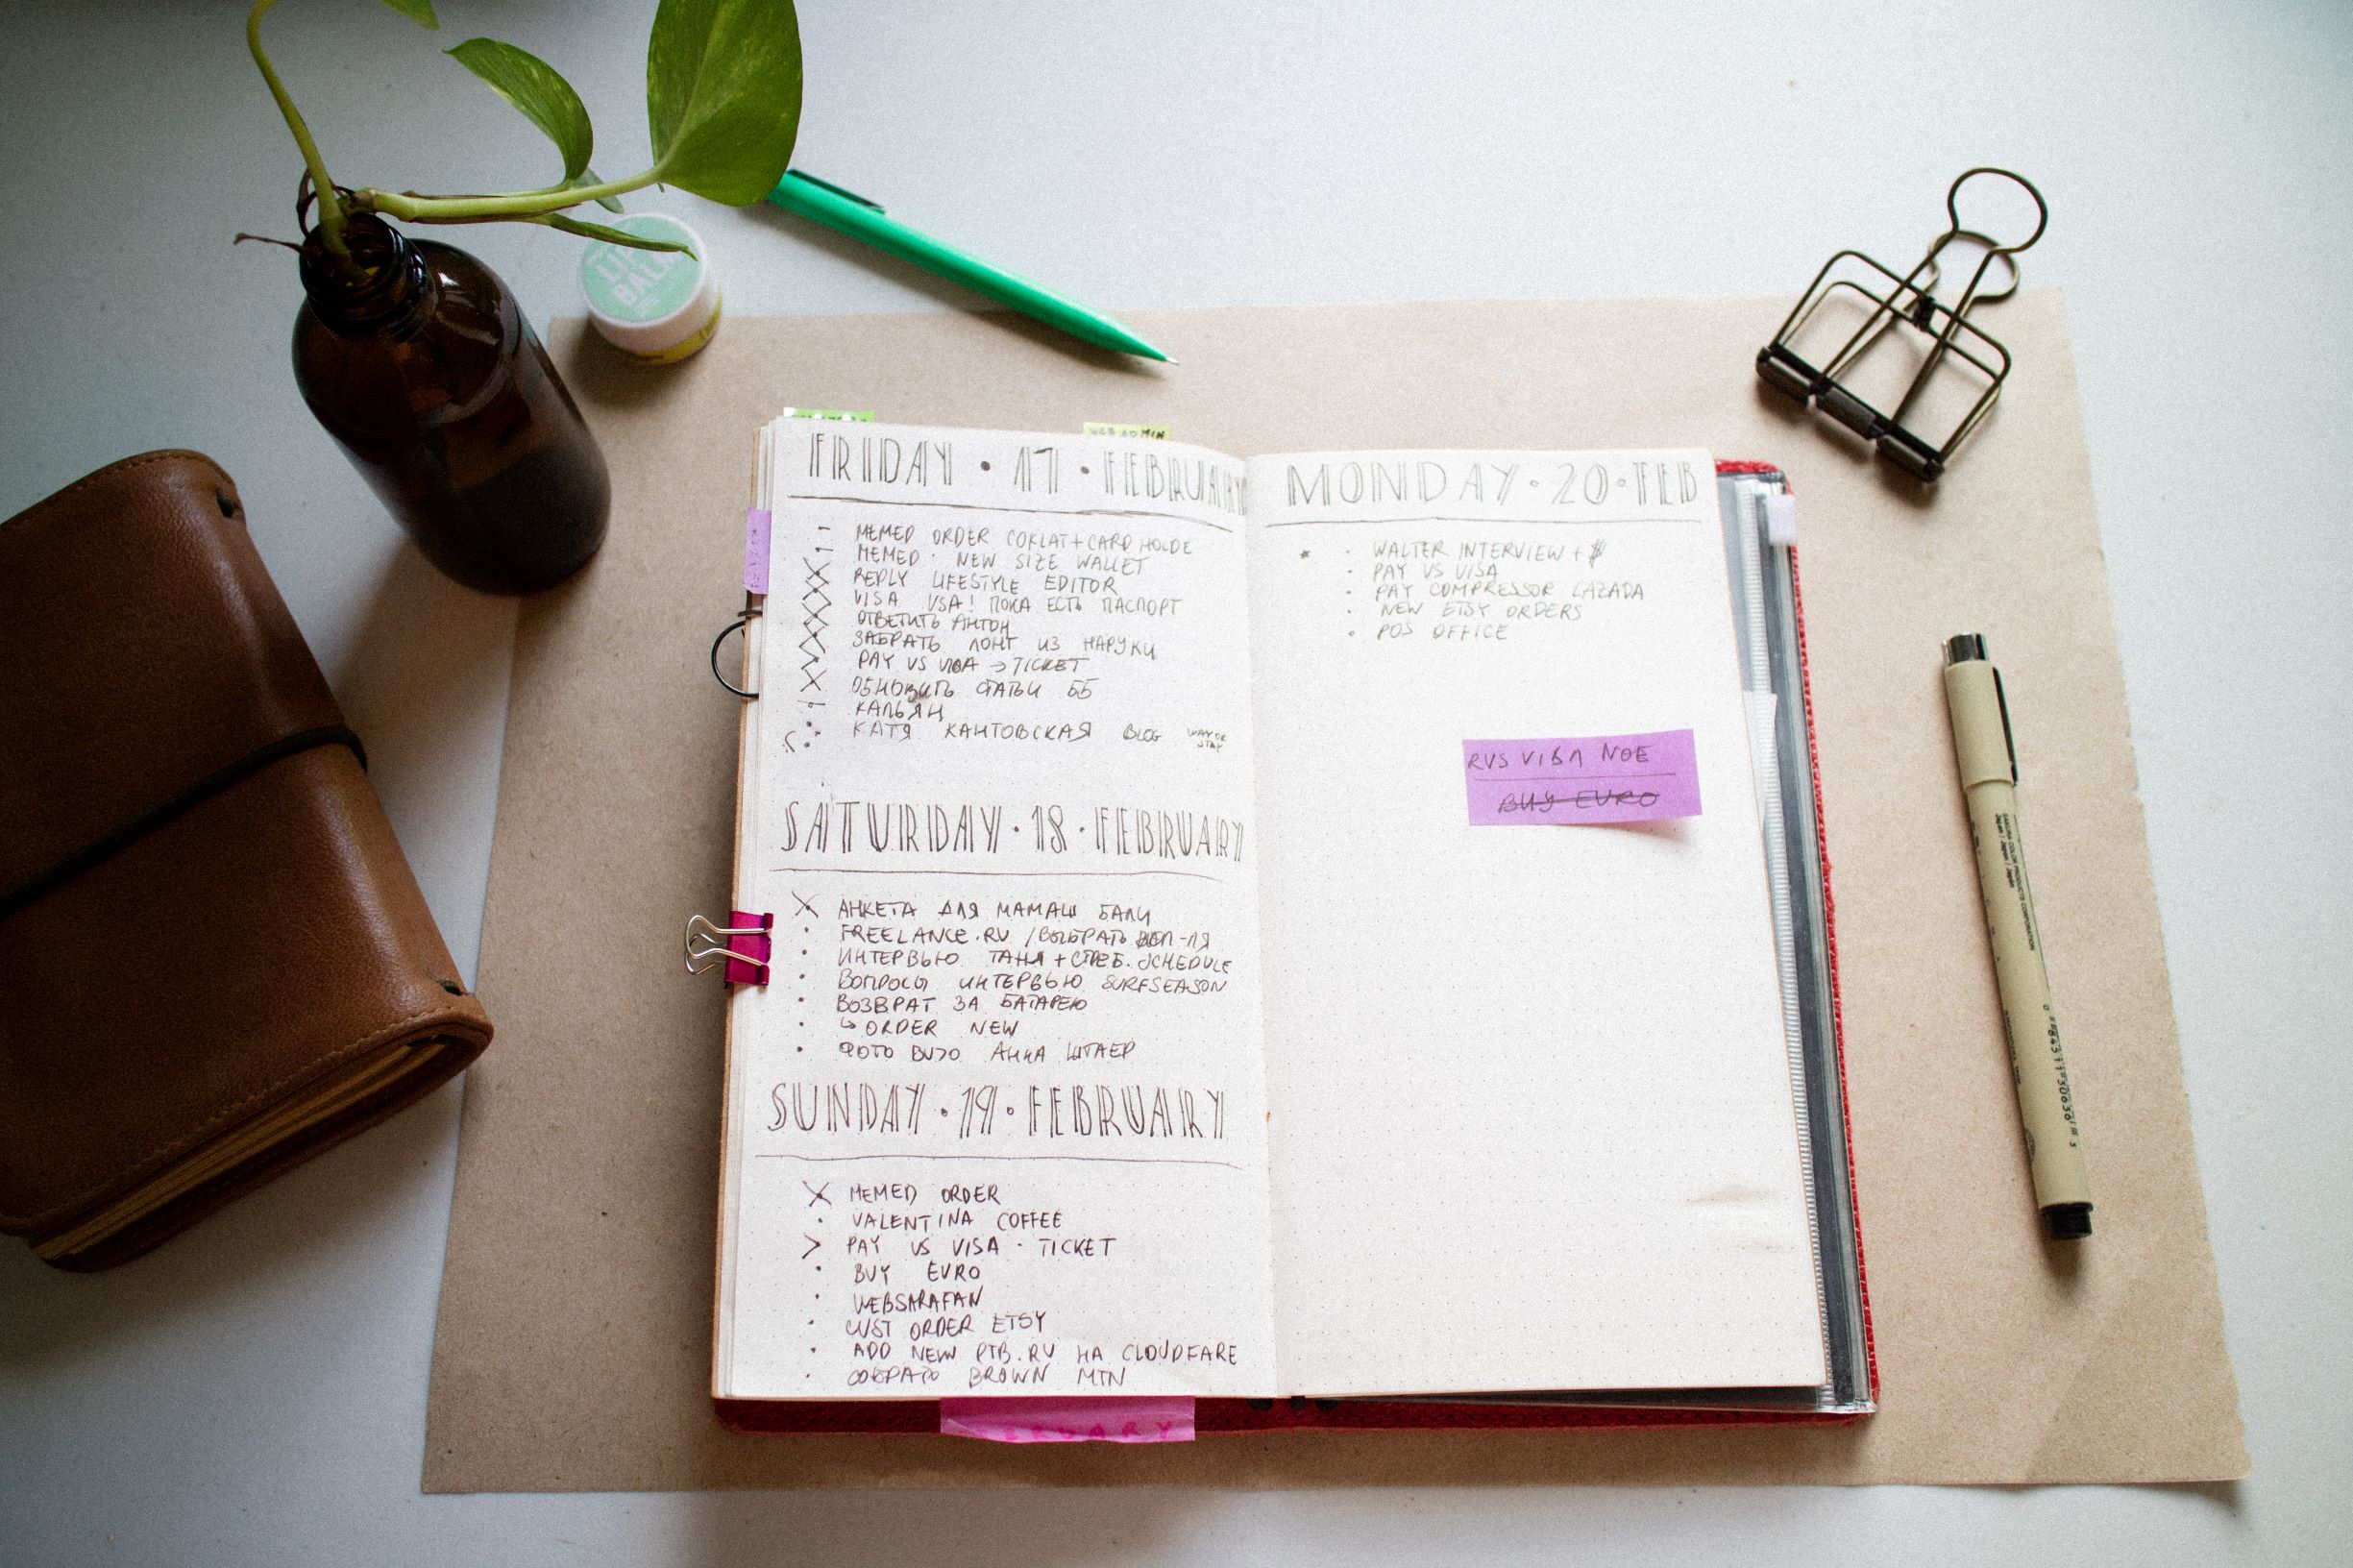 LIP
BALM
WEB ADMIN
FRIDAY · 17 · FEBRUARY
MEMED ORDER COKLAT + CARD HOLDE
MEMED · NEW SIZE WALLET
REPLY LIFESTYLE EDITOR
VISA USA! ПОКА ЕСТЬ ПАСПОРТ
ОТВЕТИТЬ АНТОН
ЗАБРАТЬ ЛОНГ ИЗ НАРУКИ
PAY US VISA → TICKET
ОБНОВИТЬ СТАТЬИ ББ
КАЛЬЯН
КАТЯ КАНТОВСКАЯ BLOG
SATURDAY · 18 · FEBRUARY
АНКЕТА ДЛЯ МАМАШ БАЛИ
FREELANCE.RU / ВЫБРАТЬ
ИНТЕРВЬЮ ТАНЯ + SCHEDULE
ВОПРОСЫ ИНТЕРВЬЮ SURFSEASON
ВОЗВРАТ ЗА БАТАРЕЮ
↳ ORDER NEW
ФОТО АННА ШТАЕР
SUNDAY · 19 · FEBRUARY
MEMED ORDER
VALENTINA COFFEE
> PAY US VISA · TICKET
BUY EURO
WEBSARAFAN
CUST ORDER ETSY
ADD NEW PTB.RU НА CLOUDFARE
СОБРАТЬ BROWN MTN
MONDAY · 20 · FEB
WALTER INTERVIEW + $
PAY US VISA
PAY COMPRESSOR LAZADA
NEW ETSY ORDERS
POS OFFICE
RUS VISA NOE
BUY EURO